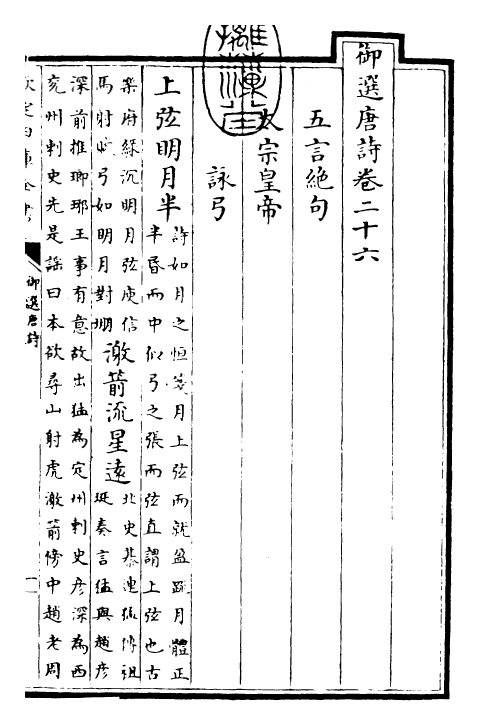 御選唐詩卷二十六
五言絶句
太宗皇帝
詠弓
上弦明月半
詩如月之恒箋月上弦而就盈疏月體正
半昏而中似弓之張而弦直謂上弦也古
樂府緑沉明月弦庾信
馬射賦弓如明月對堋
激箭流星遠
北史綦連猛傳祖
珽奏言猛與趙彦
深前推琅琊王事有意故出猛為定州刺史彦深為西
兖州刺史先是謡曰本欲尋山射虎激箭傍中趙老周
欽定四庫全書
御選唐詩
一